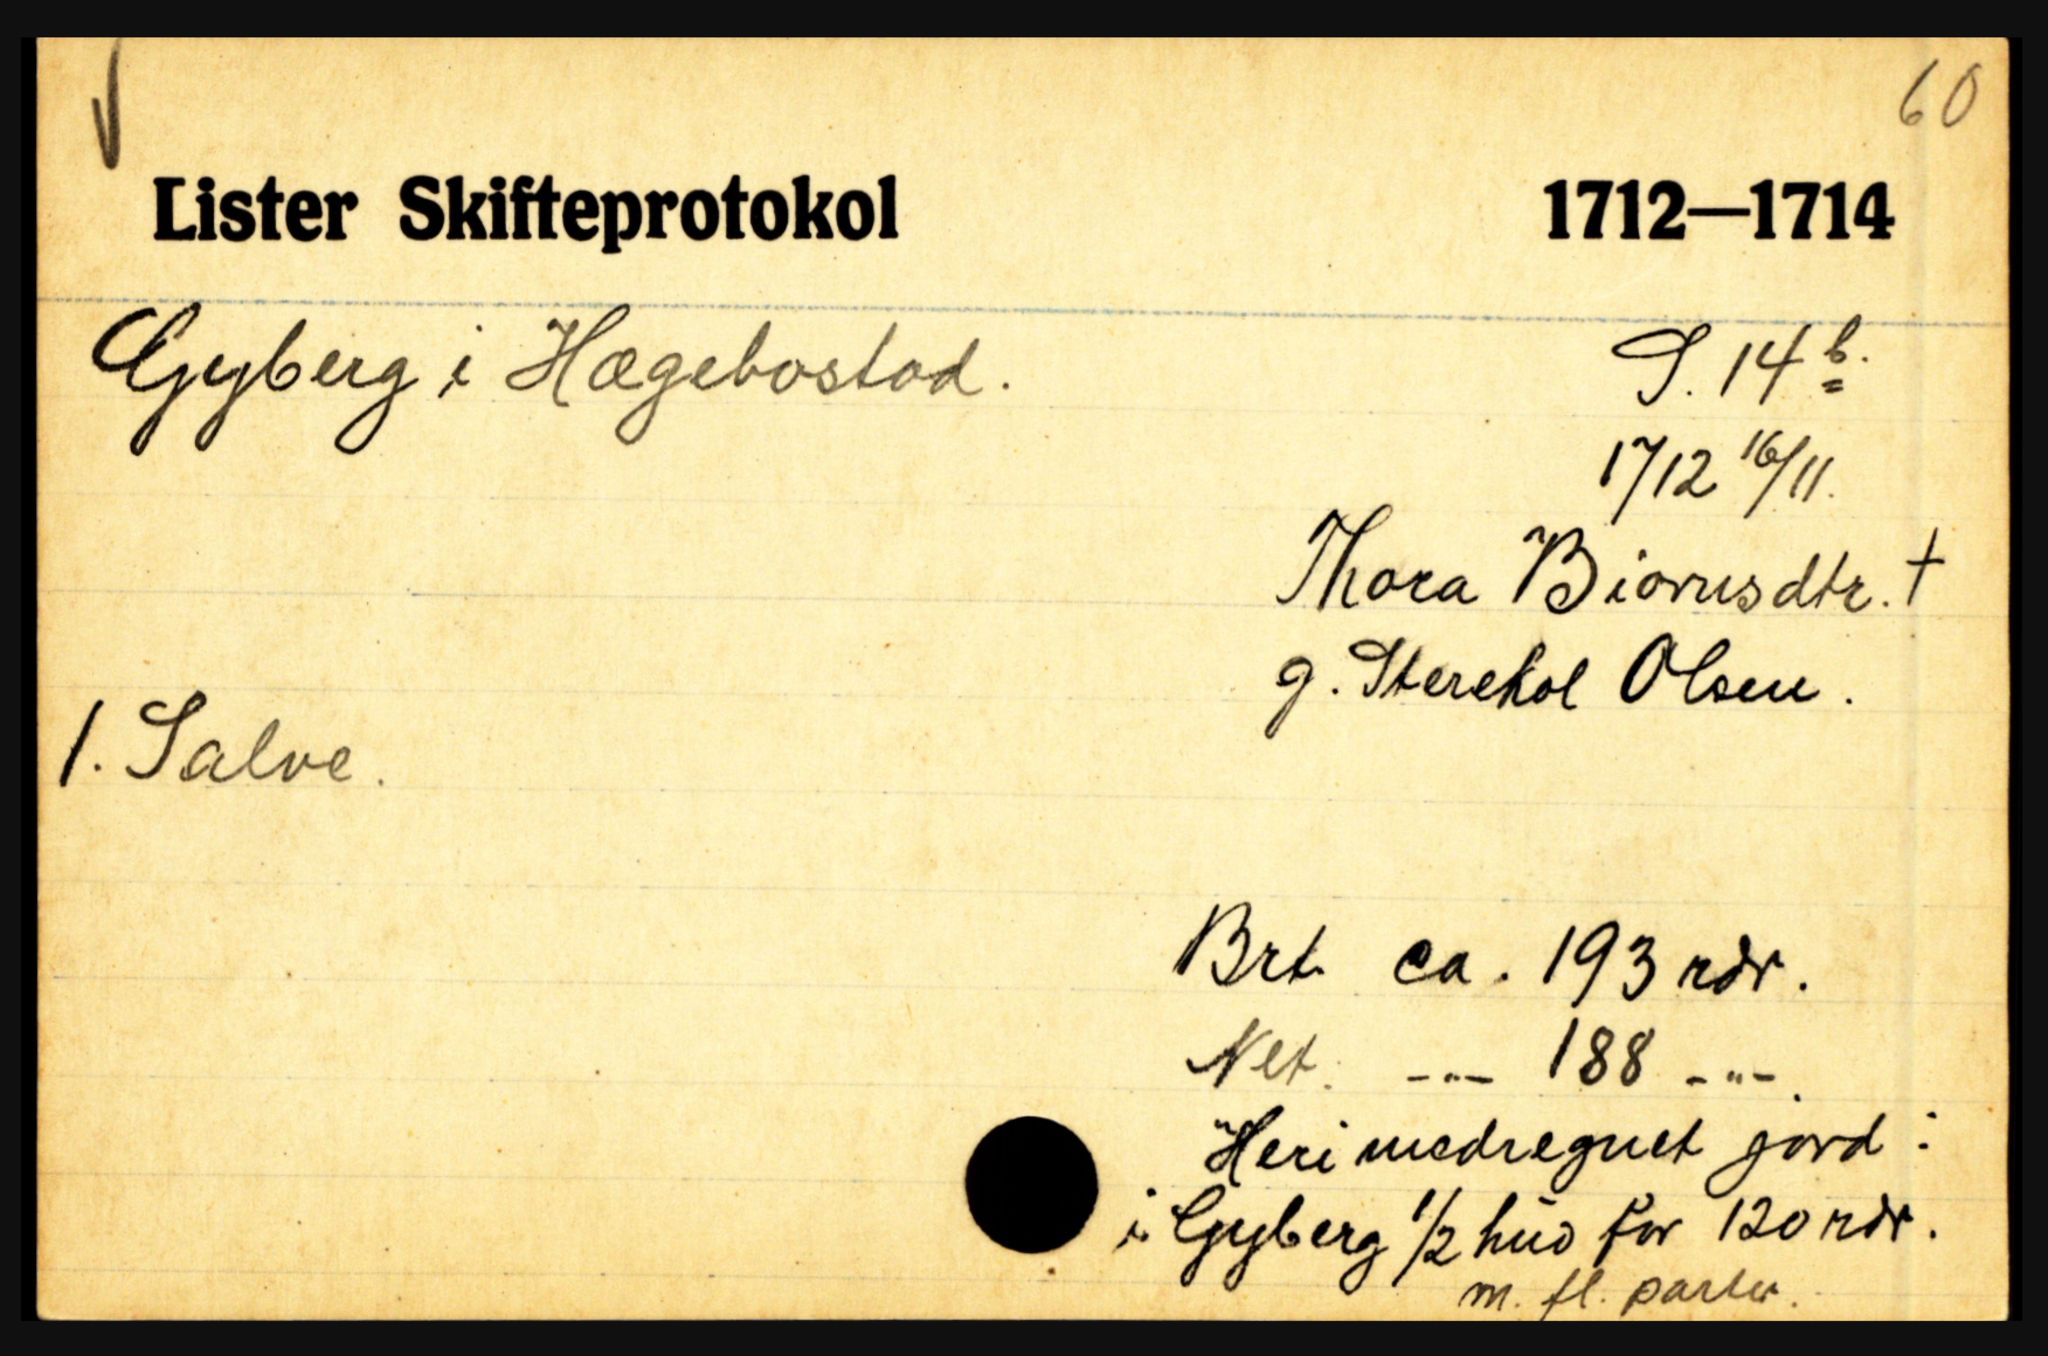 60
Lister Skifteprotokol 1712—1714
Gyberg i Hægebostad.
S. 14 b.
1712 16/11.
Thora Biornsdtr. †
g. Sterekol Olsen.
1. Salve.
Brt. ca. 193 rdr.
Net. -"- 188 -"-.
Heri medregnet jord:
i Gyberg 1/2 hud for 120 rdr.
m. fl. parter.